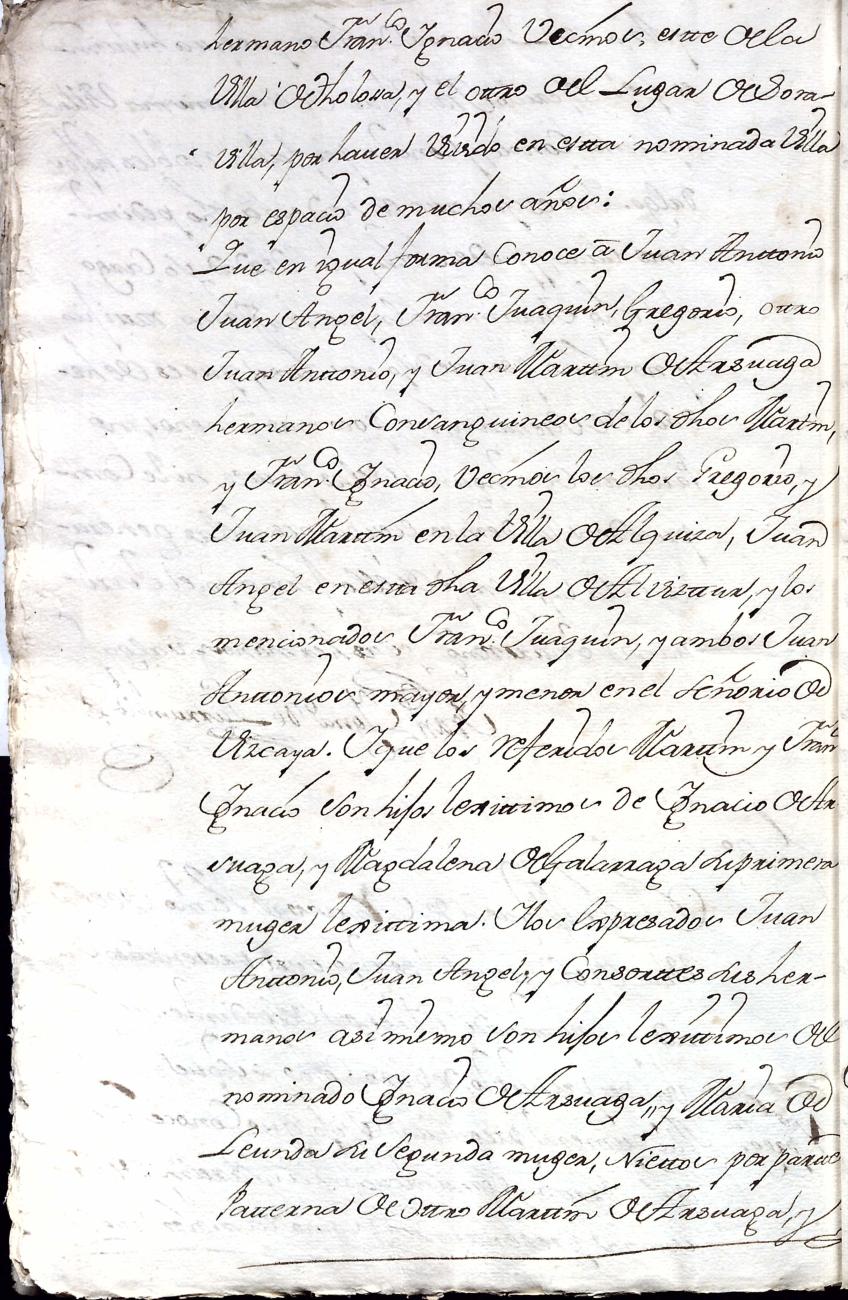 hermano Fran.co Ignacio Vecinos, estte de la
Villa de tholosa, y el ottro del Lugar de Sora-
villa, por haver Vivido en estta nominada Villa
por espacio de muchos años:
Que en igual forma Conoce â Juan Anttonio
Juan Angel, Fran.co Juaquin, Gregorio, ottro
Juan Anttonio, y Juan Marttin de Arsuaga
hermanos Consanguineos de los dhos Marttin,
y Fran.co Ignacio, Vecinos los dhos Gregorio, y
Juan Marttin en la Villa de Alquiza, Juan
Angel en estta dha Villa de Alvisttur, y los
mencionados Fran.co Juaquin, y ambos Juan
Anttonios mayor, y menor en el Señorio de
Vizcaya. I que los referidos Marttin y Fran.co
Ignacio son hijos lexittimos de Ignacio de Ar
suaga, y Magdalena de Galarraga su primera
muger lexittima. I los Expresados Juan
Anttonio, Juan Angel, y Consorttes sus her-
manos asi mismo son hijos lexittimos del
nominado Ignacio de Arsuaga, y Maria de
Leunda su segunda muger, Niettos por partte
Patterna de ottro Marttin de Arsuaga, y